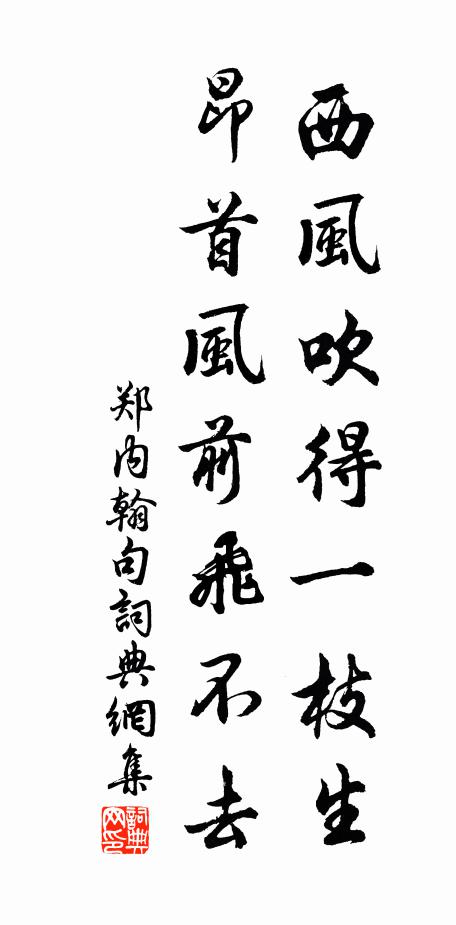 西風吹得一枝生
昂首風前飛不去
郑内翰句詞典網集
詞典网印